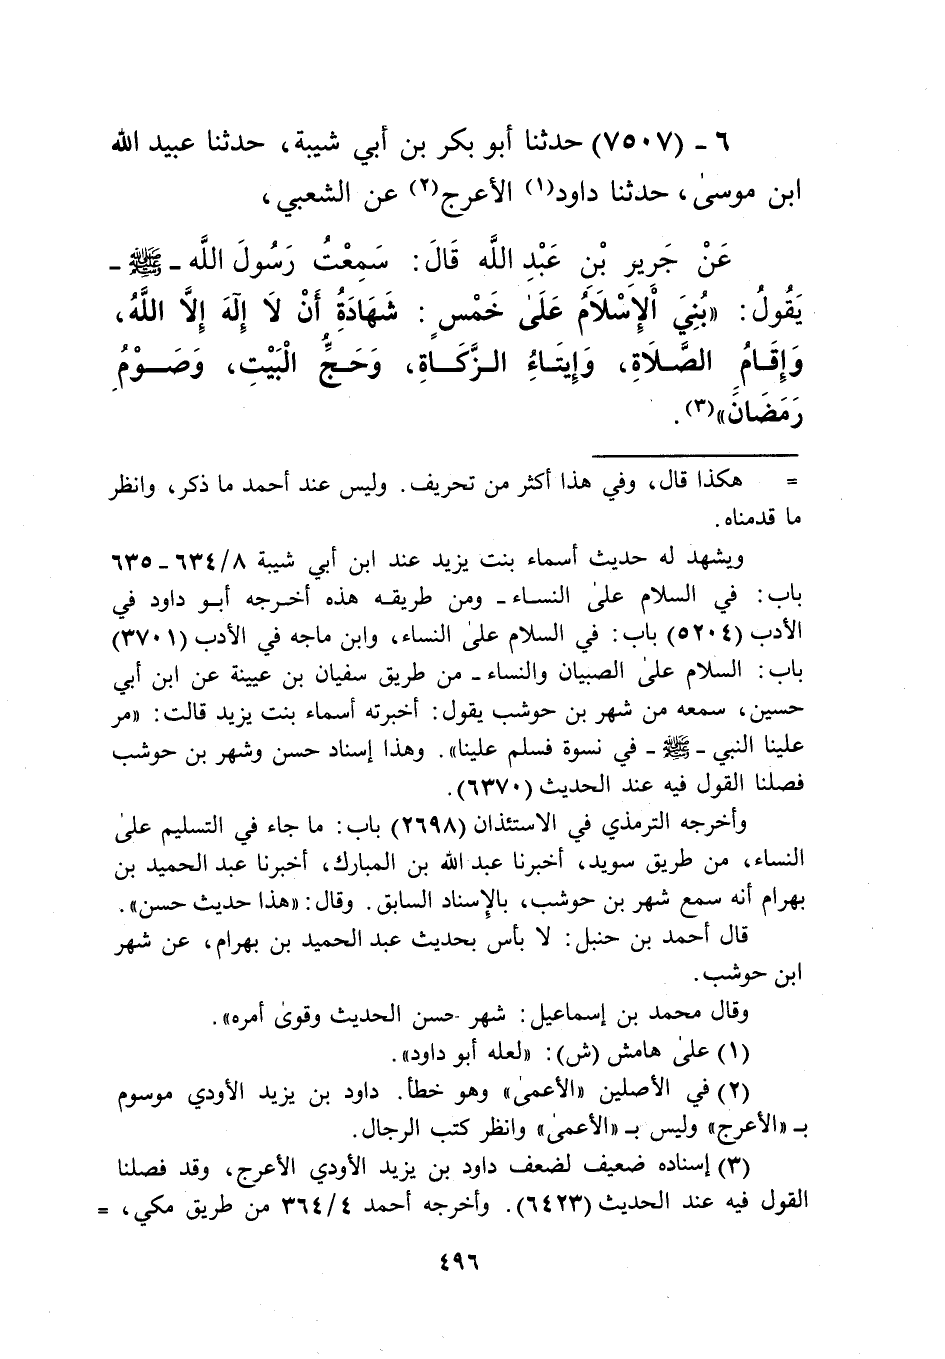 ٦ - (٧٥٠٧) حدثنا أبو بكر بن أبي شيبة، حدثنا عبيد الله
ابن موسىٰ، حدثنا داود(١) الأعرج(٢) عن الشعبي،
عَنْ جَرِيرِ بْنِ عَبْدِ اللَّه قَالَ: سَمِعْتُ رَسُولَ اللَّه - ﷺ -
يَقُولُ: «بُنِيَ اْلإِسْلَامُ عَلَىٰ خَمْسٍ: شَهَادَةُ أَنْ لَا إِلَهَ إِلَّا اللَّهُ،
وَإِقَامُ الصَّلَاةِ، وَإِيتَاءُ الزَّكَاةِ، وَحَجُّ الْبَيْتِ، وَصَوْمُ
رَمَضَانَ»(٣).
= هكذا قال، وفي هذا أكثر من تحريف. وليس عند أحمد ما ذكر، وانظر
ما قدمناه.
ويشهد له حديث أسماء بنت يزيد عند ابن أبي شيبة ٦٣٤/٨ - ٦٣٥
باب: في السلام علىٰ النساء - ومن طريقه هذه أخرجه أبو داود في
الأدب (٥٢٠٤) باب: في السلام علىٰ النساء، وابن ماجه في الأدب (٣٧٠١)
باب: السلام علىٰ الصبيان والنساء - من طريق سفيان بن عيينة عن ابن أبي
حسين، سمعه من شهر بن حوشب يقول: أخبرته أسماء بنت يزيد قالت: «مر
علينا النبي - ﷺ - في نسوة فسلم علينا». وهذا إسناد حسن وشهر بن حوشب
فصلنا القول فيه عند الحديث (٦٣٧٠).
وأخرجه الترمذي في الاستئذان (٢٦٩٨) باب: ما جاء في التسليم علىٰ
النساء، من طريق سويد، أخبرنا عبد الله بن المبارك، أخبرنا عبد الحميد بن
بهرام أنه سمع شهر بن حوشب، بالإسناد السابق. وقال: «هذا حديث حسن».
قال أحمد بن حنبل: لا بأس بحديث عبد الحميد بن بهرام، عن شهر
ابن حوشب.
وقال محمد بن إسماعيل: شهر حسن الحديث وقوىٰ أمره».
(١) علىٰ هامش (ش): «لعله أبو داود».
(٢) في الأصلين «الأعمىٰ» وهو خطأ. داود بن يزيد الأودي موسوم
بـ «الأعرج» وليس بـ «الأعمىٰ» وانظر كتب الرجال.
(٣) إسناده ضعيف لضعف داود بن يزيد الأودي الأعرج، وقد فصلنا
القول فيه عند الحديث (٦٤٢٣). وأخرجه أحمد ٣٦٤/٤ من طريق مكي، =
٤٩٦